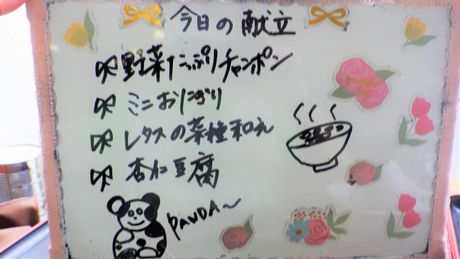 今日の献立
野菜たっぷりチャンポン
ミニおにぎり
レタスの菜種和え
杏仁豆腐
PANDA〜